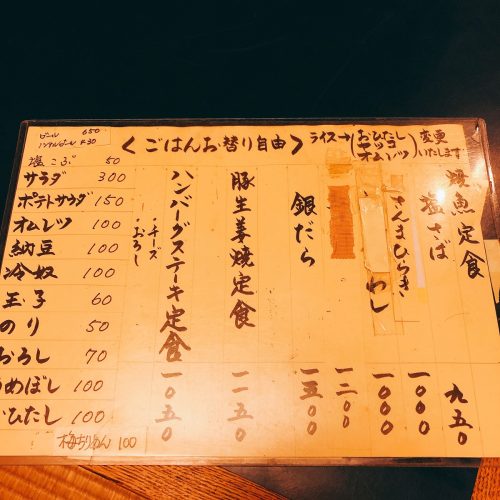 ＜ごはんお替り自由＞
ライス→(おひたし
ナットウ
オムレツ)変更
いたします
焼魚定食
塩さば 九五〇
さんまひらき 一〇〇〇
いわし 一〇〇〇
一二〇〇
銀だら 一五〇〇
豚生姜焼定食 一一五〇
ハンバーグステーキ定食 一〇五〇
・チーズ
・おろし
ビール 650
ノンアルビール 430
塩こぶ 50
サラダ 300
ポテトサラダ 150
オムレツ 100
納豆 100
冷奴 100
玉子 60
のり 50
おろし 70
うめぼし 100
おひたし 100
梅ちりめん 100